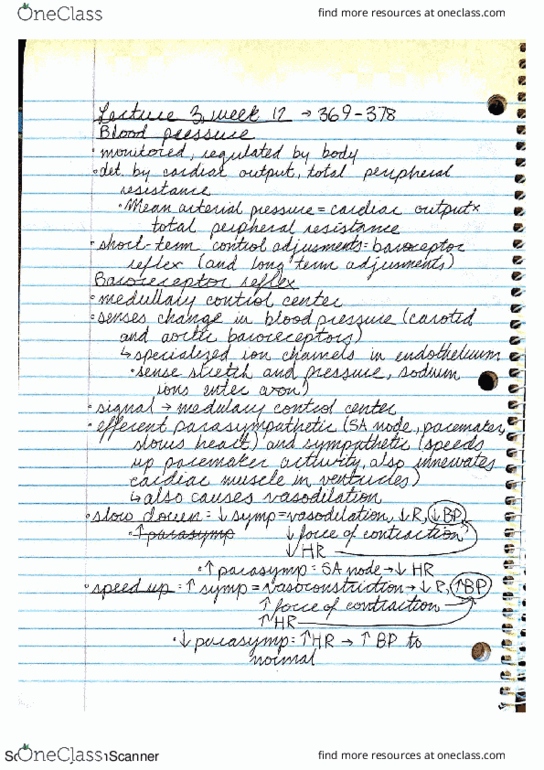 OneClass
find more resources at oneclass.com
Lecture 3, week 12 → 369-378
Blood pressure
• monitored, regulated by body
• det. by cardiac output, total peripheral
resistance
• Mean arterial pressure = cardiac output ×
total peripheral resistance
• short-term control adjusments = baroreceptor
reflex (and long term adjusments)
Baroreceptor reflex
• medullary control center
• senses change in blood pressure (carotid
and aortic baroreceptors)
↳ specialized ion channels in endothelium
• sense stretch and pressure, sodium
ions enter axon)
• signal → medullary control center
• efferent parasympathetic (SA node, pacemaker,
slows heart) and sympathetic (speeds
up pacemaker activity, also innervates
cardiac muscle in ventricles)
↳ also causes vasodilation
• slow down = ↓ symp = vasodilation, ↓ R, ↓ BP
• ↑ parasymp ↓ force of contraction
↓ HR
• ↑ parasymp = SA node → ↓ HR
• speed up = ↑ symp = vasoconstriction → ↓ R, ↑ BP
↑ force of contraction
↑ HR
• ↓ parasymp = ↑ HR → ↑ BP to
normal
OneClass
Scanner
find more resources at oneclass.com